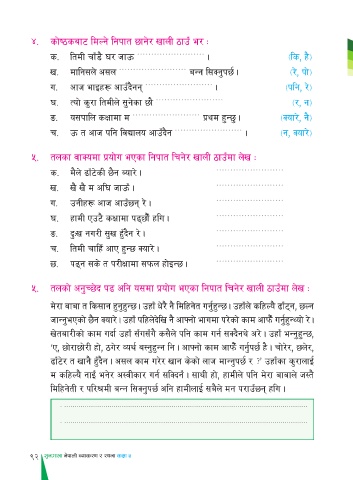 ४. कोष्ठकबाट मिल्ने निपात छानेर खाली ठाउँ भर :
क. तिमी चाँडै घर जाऊ ........................ । (कि, है)
ख. मानिसले असल ........................ बन्न सिक्नुपर्छ । (रे, पो)
ग. आज भाइहरू आउँदैनन् ........................ । (पनि, रे)
घ. त्यो कुरा तिमीले सुनेका छौ ........................ (र, न)
ङ. यसपालि कक्षामा म ........................ प्रथम हुन्छु । (क्यारे, नै)
च. ऊ त आज पनि विद्यालय आउँदैन ........................ । (न, क्यारे)
५. तलका वाक्यमा प्रयोग भएका निपात चिनेर खाली ठाउँमा लेख :
क. मैले ढाँटेकी छैन क्यारे । ........................
ख. खै खै म अघि जाऊँ । ........................
ग. उनीहरू आज आउँछन् रे । ........................
घ. हामी एउटै कक्षामा पढ्छौँ हगि । ........................
ङ. दुःख नगरी सुख हुँदैन रे । ........................
च. तिमी चाहिँ आए हुन्छ क्यारे । ........................
छ. पढ्न सके त परीक्षामा सफल होइन्छ । ........................
५. तलको अनुच्छेद पढ अनि यसमा प्रयोग भएका निपात चिनेर खाली ठाउँमा लेख :
मेरा बाबा त किसान हुनुहुन्छ । उहाँ धेरै नै मिहिनेत गर्नुहुन्छ । उहाँले कहिल्यै ढाँट्न, छल्न
जान्नुभएको छैन क्यारे । उहाँ पहिलेदेखि नै आफ्नो भागमा परेको काम आफैँ गर्नुहुन्थ्यो रे ।
खेतबारीको काम गर्दा उहाँ सँगसँगै कसैले पनि काम गर्न सक्दैनथे अरे । उहाँ भन्नुहुन्छ,
'ए, छोराछोरी हो, ठगेर व्यर्थ बस्नुहुन्न नि । आफ्नो काम आफैँ गर्नुपर्छ है । चोरेर, छलेर,
ढाँटेर त खानै हुँदैन । असल काम गरेर खान केको लाज मान्नुपर्छ र ?' उहाँका कुरालाई
म कहिल्यै नाइँ भनेर अस्वीकार गर्न सक्दिनँ । साथी हो, हामीले पनि मेरा बाबाले जस्तै
मिहिनेती र परिश्रमी बन्न सिक्नुपर्छ अनि हामीलाई सबैले मन पराउँछन् हगि ।
९२ नेपाली व्याकरण र रचना कक्षा ७